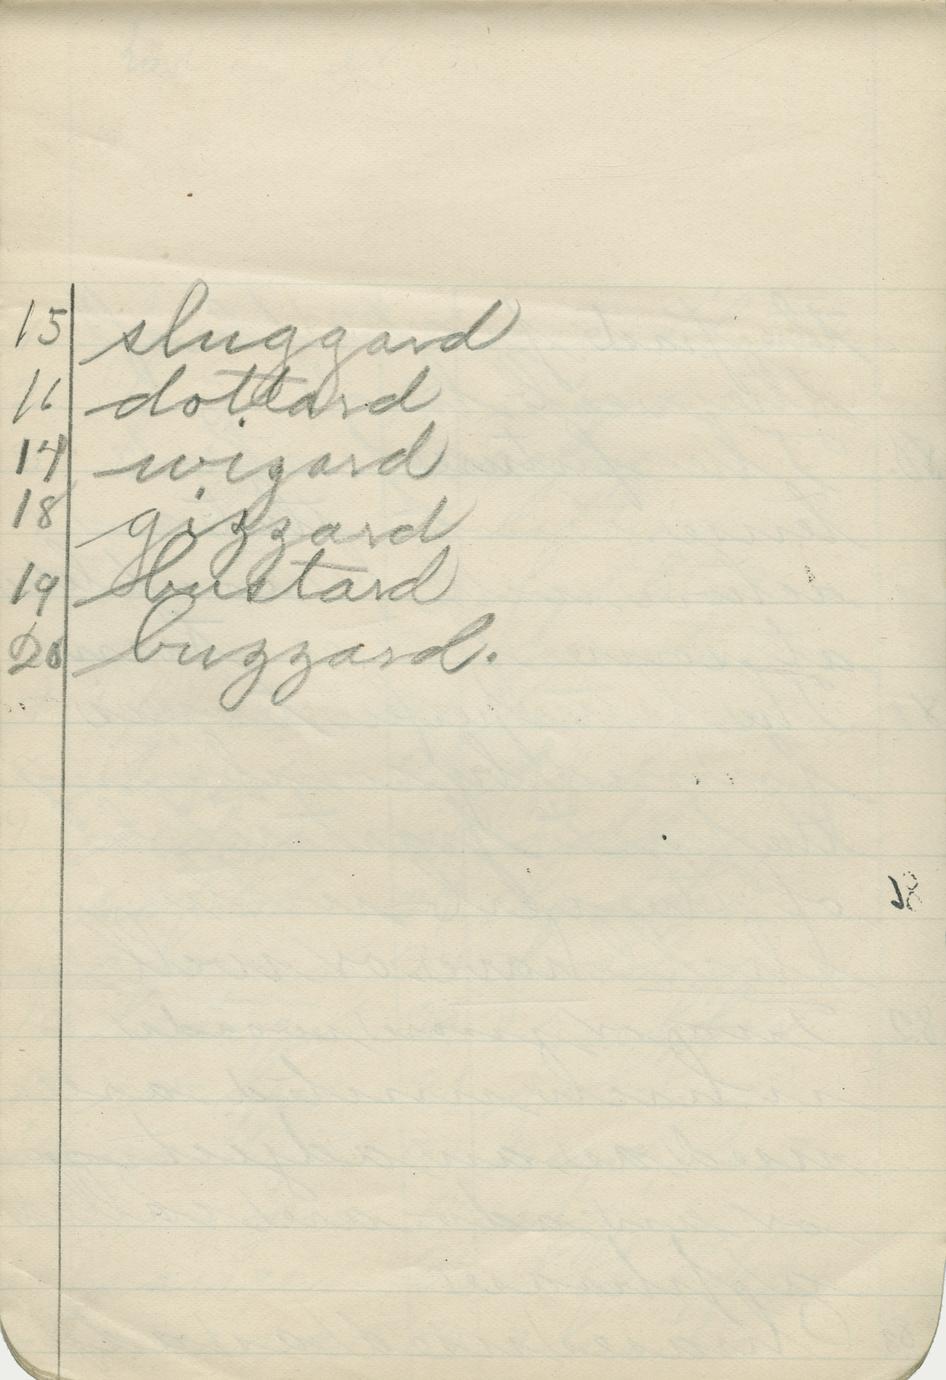 15 sluggard
16 dottard
17 wizard
18 gizzard
19 bustard
20 buzzard.